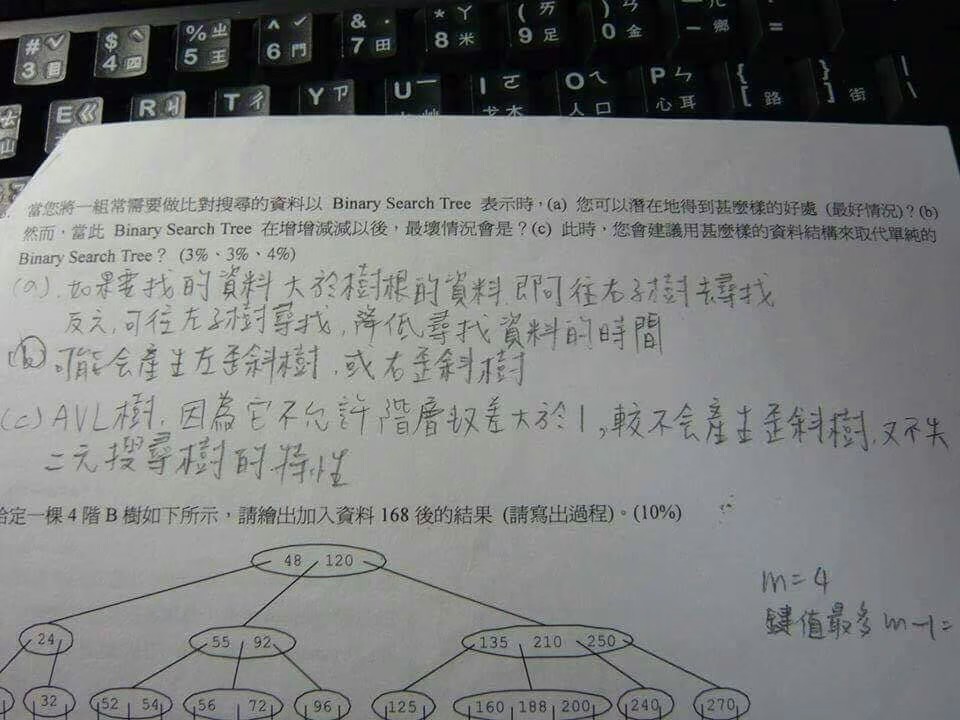 # 3 目
$ 4 四
% 5 王
^ 6 門
& 7 田
* ㄚ 8 米
( ㄞ 9 足
) ㄢ 0 金
鄉
=
山
E ㄍ
R ㄐ
T ㄔ
Y ㄗ
U ㄧ
I ㄛ 戈 木
O ㄟ 人 口
P ㄣ 心 耳
{ [ 路
} ] 街
| \
當您將一組常需要做比對搜尋的資料以 Binary Search Tree 表示時,(a) 您可以潛在地得到甚麼樣的好處 (最好情況)?(b)
然而,當此 Binary Search Tree 在增增減減以後,最壞情況會是?(c) 此時,您會建議用甚麼樣的資料結構來取代單純的
Binary Search Tree? (3%、3%、4%)
(a). 如果要找的資料大於樹根的資料,即可往右子樹去尋找
反之,可往左子樹尋找,降低尋找資料的時間
(b) 可能会產生左歪斜樹,或右歪斜樹
(c) AVL樹,因為它不允許階層數差大於1,較不会產生歪斜樹,又不失
二元搜尋樹的特性
給定一棵 4 階 B 樹如下所示,請繪出加入資料 168 後的結果 (請寫出過程)。(10%)
48 120
m=4
鍵值最多 m-1=
24
55 92
135 210 250
32
52 54
56 72
96
125
160 188 200
240
270